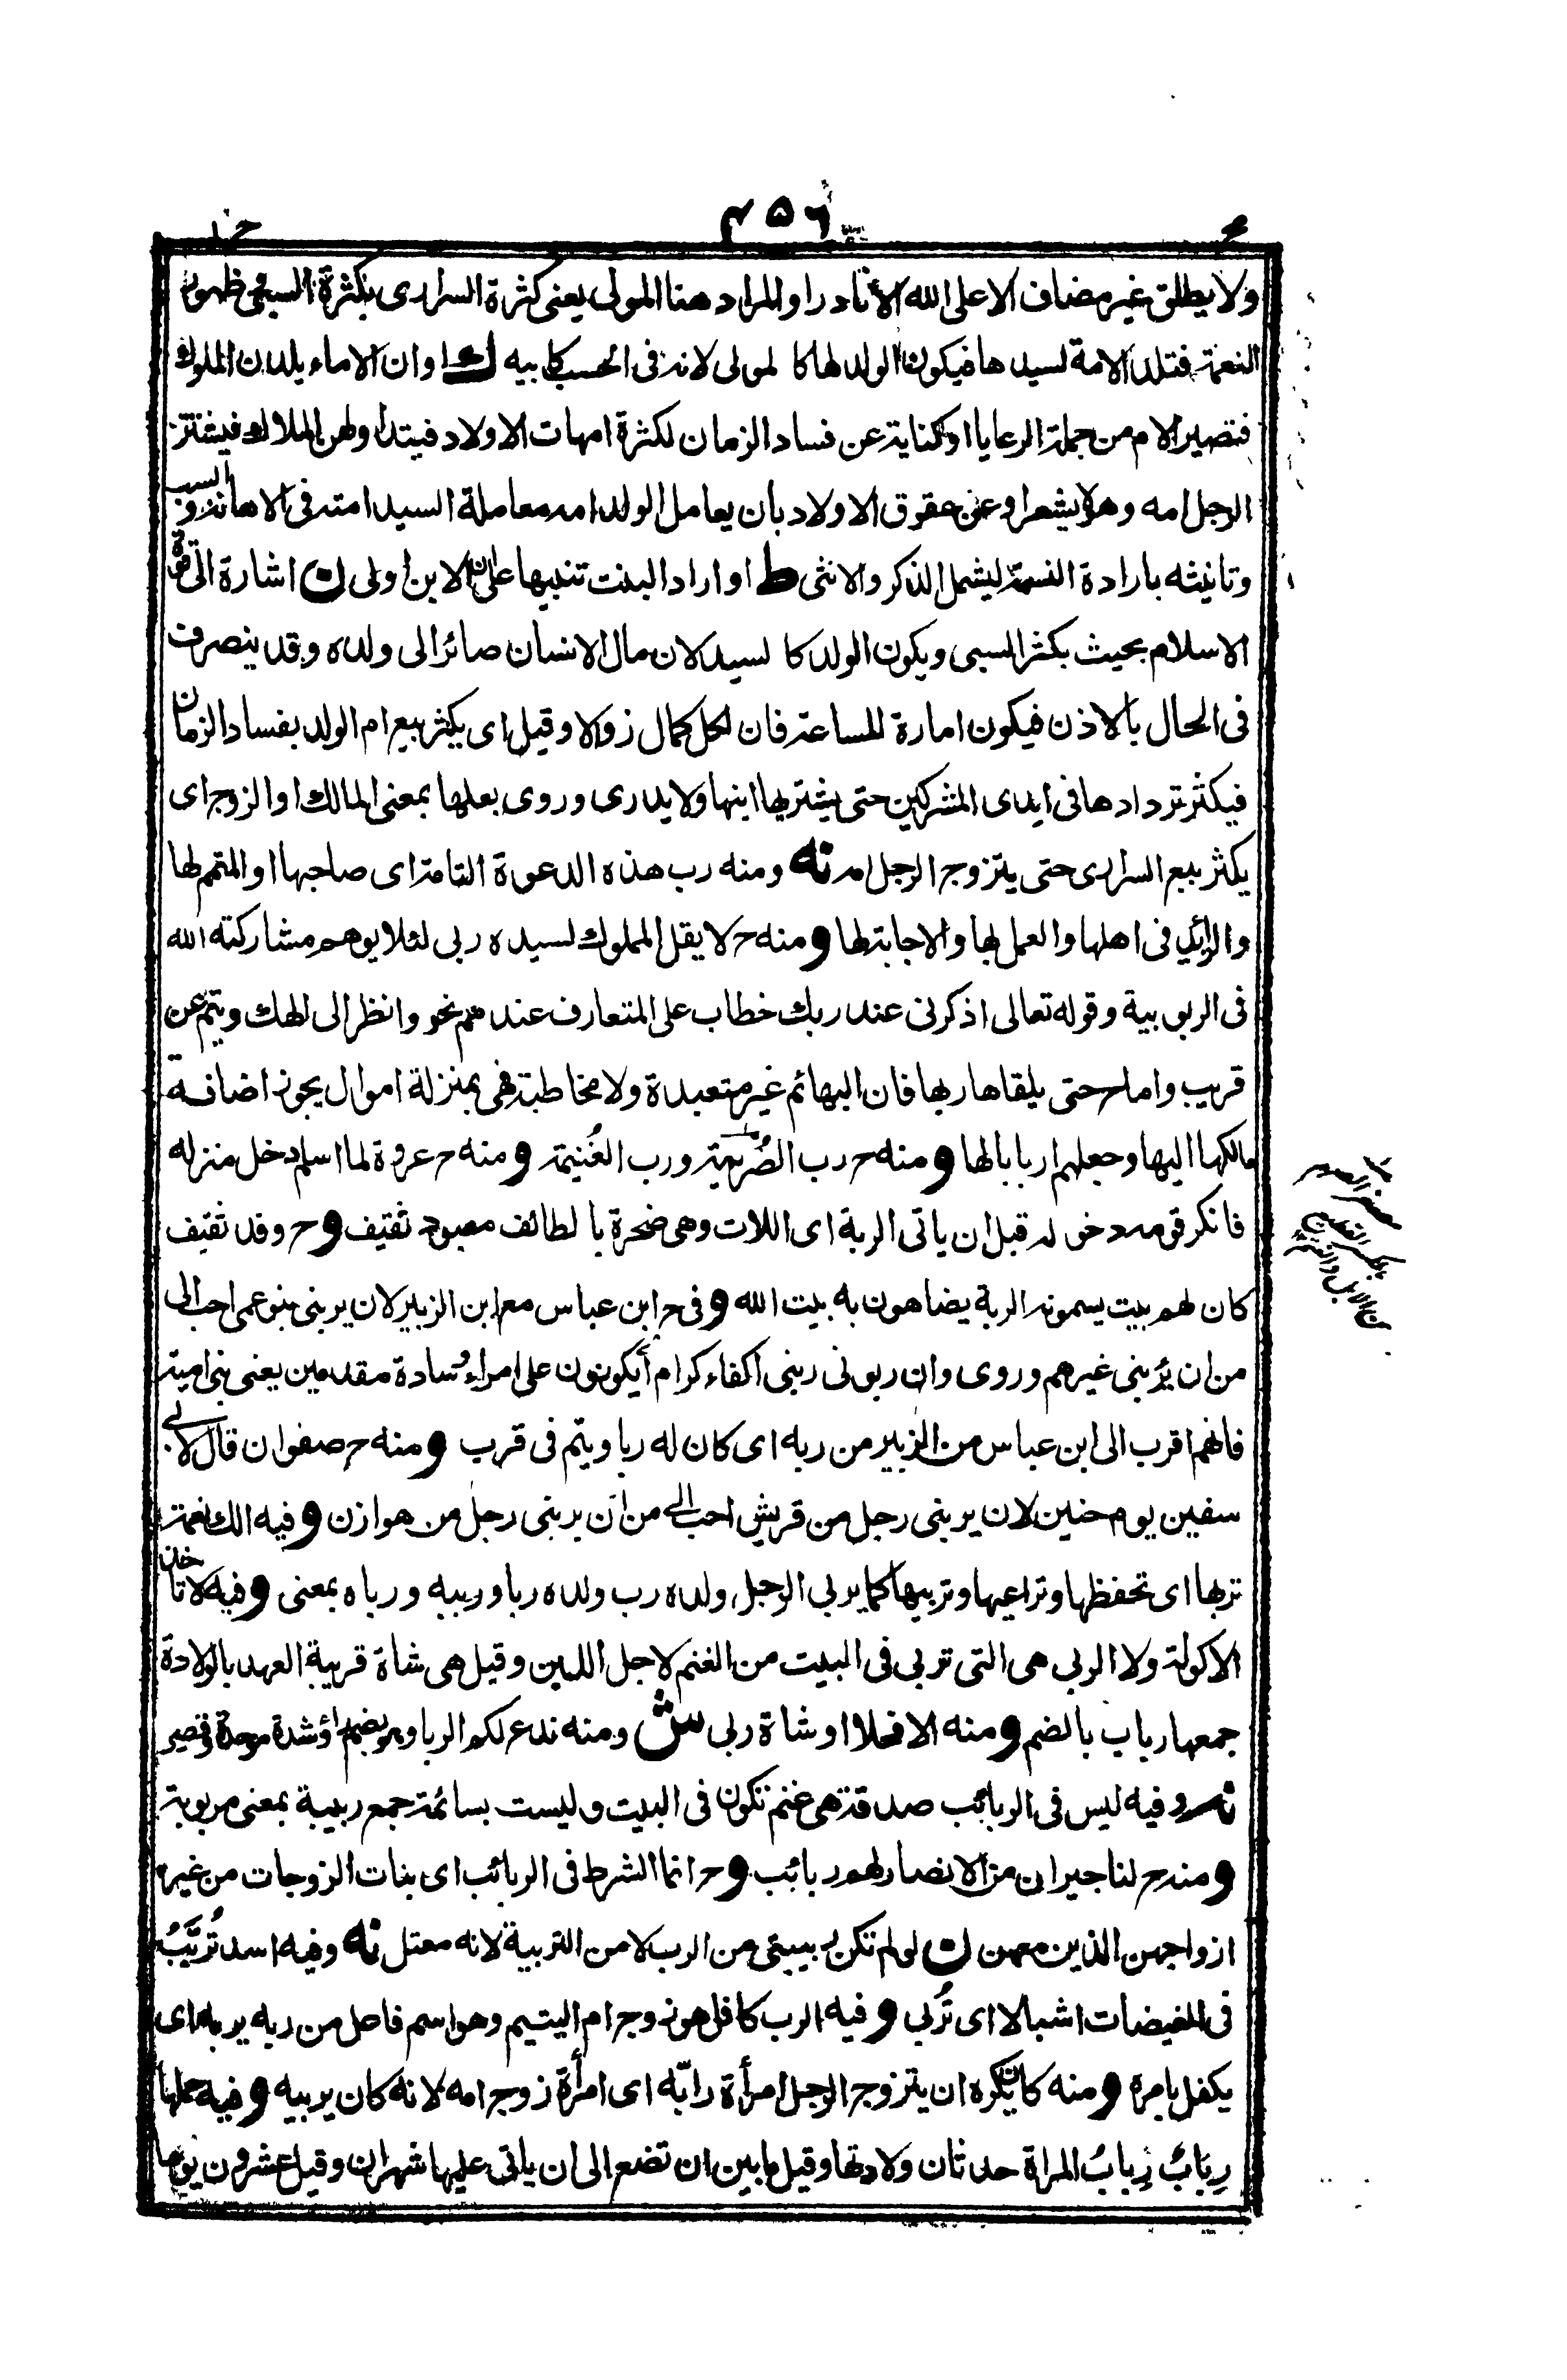 ٤٥٦
ولا يطلق غير مضاف الا على الله الا نادرا والمراد هنا المولى يعنى كثرة السرارى بكثرة السبى وظهور
النعمة فتلد الامة لسيدها فيكون الولد لها كالمولى لانه فى الحسب كابيه ك او ان الاماء يلدن الملوك
فتصير الام من جملة الرعايا او كناية عن فساد الزمان لكثرة امهات الاولاد فيتداولهن الملاك فيشترى
الرجل امه وهو لا يشعر او عن عقوق الاولاد بان يعامل الولد امه معاملة السيد امته فى الاهانة والسب
وتانيثه بارادة النسمة ليشمل الذكر والانثى ط او اراد البنت تنبيها على ان الابن اولى ن اشارة الى قوة
الاسلام بحيث يكثر السبى ويكون الولد كالسيد لان مال الانسان صائر الى ولده وقد يتصرف
فى الحال بالاذن فيكون امارة للساعة فان لكل كمال زوالا وقيل اى يكثر بيع ام الولد بفساد الزمان
فيكثر تردادها فى ايدى المشتركين حتى يشتريها ابنها ولا يدرى وروى بعلها بمعنى المالك او الزوج اى
يكثر بيع السرارى حتى يتزوج الرجل امه نه ومنه رب هذه الدعوة التامة اى صاحبها او المتمم لها
والزائد فى اهلها والعمل بها والاجابة لها ومنه ح لا يقل المملوك لسيده ربى لئلا يوهم مشاركته الله
فى الربوبية وقوله تعالى اذكرنى عند ربك خطاب على المتعارف عندهم نحو وانظر الى الهك ويتم عن
قريب واما ح حتى يلقاها ربها فان البهائم غير متعبدة ولا مخاطبة فهى بمنزلة اموال يجوز اضافة
مالكها اليها وجعلهم اربابا لها ومنه ح رب الصُريمة ورب الغُنيمة ومنه ح عروة لما اسلم دخل منزله
فانكر قومه دخوله قبل ان ياتى الربة اى اللات وهى صخرة بالطائف معبود ثقيف وح وفد ثقيف
كان لهم بيت يسمونه الربة يضاهون به بيت الله وفى ح ابن عباس مع ابن الزبير لان يربنى بنو عمى احب الى
من ان يَرُبنى غيرهم وروى وان ربونى ربنى اكفاء كرام أيكونون على امراءُ وسادة مقدمين يعنى بنى امية
فانهم اقرب الى ابن عباس من الزبير من ربه اى كان له ربا ويتم فى قرب ومنه ح صفوان قال لابى
سفين يوم حنين لان يربنى رجل من قريش احب الى من ان يربنى رجل من هوازن وفيه الك نعمة
تربها اى تحفظها وتراعيها وتربيها كما يربى الرجل ولده رب ولده ربا ورببه ورباه بمعنى وفيه لا تاخذ
الاكولة ولا الربى هى التى تربى فى البيت من الغنم لاجل اللبن وقيل هى شاة قريبة العهد بالولادة
جمعها رباب بالضم ومنه الا فحلا او شاة ربى ش ومنه ندع لكم الربا وهو بضم راء وشدة موحدة وقصر
نه وفيه ليس فى الربائب صدقة هى غنم تكون فى البيت وليست بسائمة جمع ربيبة بمعنى مربوبة
ومنه ح لنا جيران من الانصار لهم ربائب وح انما الشرط فى الربائب اى بنات الزوجات من غير
ازواجهن الذين معهن ن لو لم تكن ربيبتى من الرب لا من التربية لانه معتل نه وفيه اسد تُرَبِّبُ
فى الغيضات اشبالا اى تُربى وفيه الرب كافل هو زوج ام اليتيم وهو اسم فاعل من ربه يربه اى
يكفل بامره ومنه كان يكره ان يتزوج الرجل امرأة رابّه اى امرأة زوج امه لانه كان يربيه وفيه حملها
رِبَابٌ رِبابُ المراة حدثان ولادتها وقيل ما بين ان تضع الى ان ياتى عليها شهران وقيل عشرون يوما